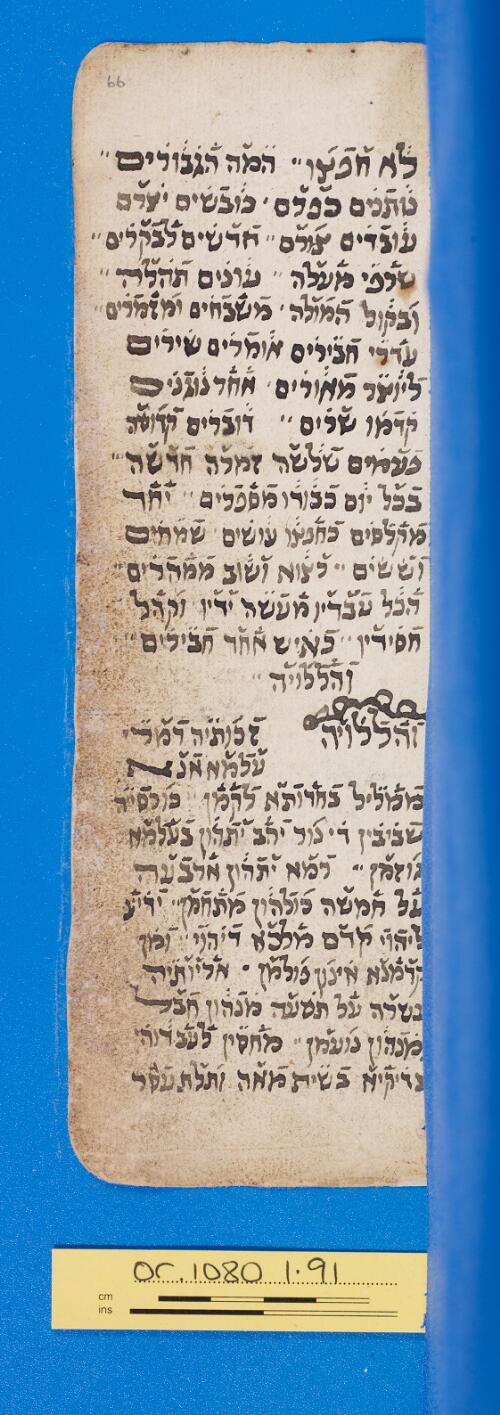 66
לא חפצו״ המה הגבורים״
נותנים כפלם׳ כובשים יצרם
עובדים צורם״ חדשים לבקרים״
שרפי מעלה״ עונים תהלה״
ובקול המולה׳ משבחים ומזמרים״
עדרי חבילים אומרים שירים
ליוצר מאורים׳ אחר נוגנים
קדמו שרים״ דוברים קדושה
פעמים שלשה זמרה חדשה״
בכל יום כבודו מספרים״ יחד
מקלסים כחפצו עושים׳ שמחים
וששים״ לצוא ושוב ממהרים״
הכל עבדיו מעשה ידיו וקהל
חסידיו״ כאיש אחד חבילים״
והללויה״
והללויה זכותיה דמרי
עלמא אנ
ממליל בחדותא
שביבין די נור יהב יתהון בעלמא
רמא יתהון ארבעה
על חמשה כולהון מתחמן״ ידיע
ליהוי קדם מלכא דיהוי״ ומן
קדמנא אינון כולמן׳ אליותיה
בשרה על תשעה מנהון חבל
מנהון נועמן״ מחסין לעבדוהי
צדיקיא בשית מאה ותלת עסר
or.1080 1.91
cm
ins